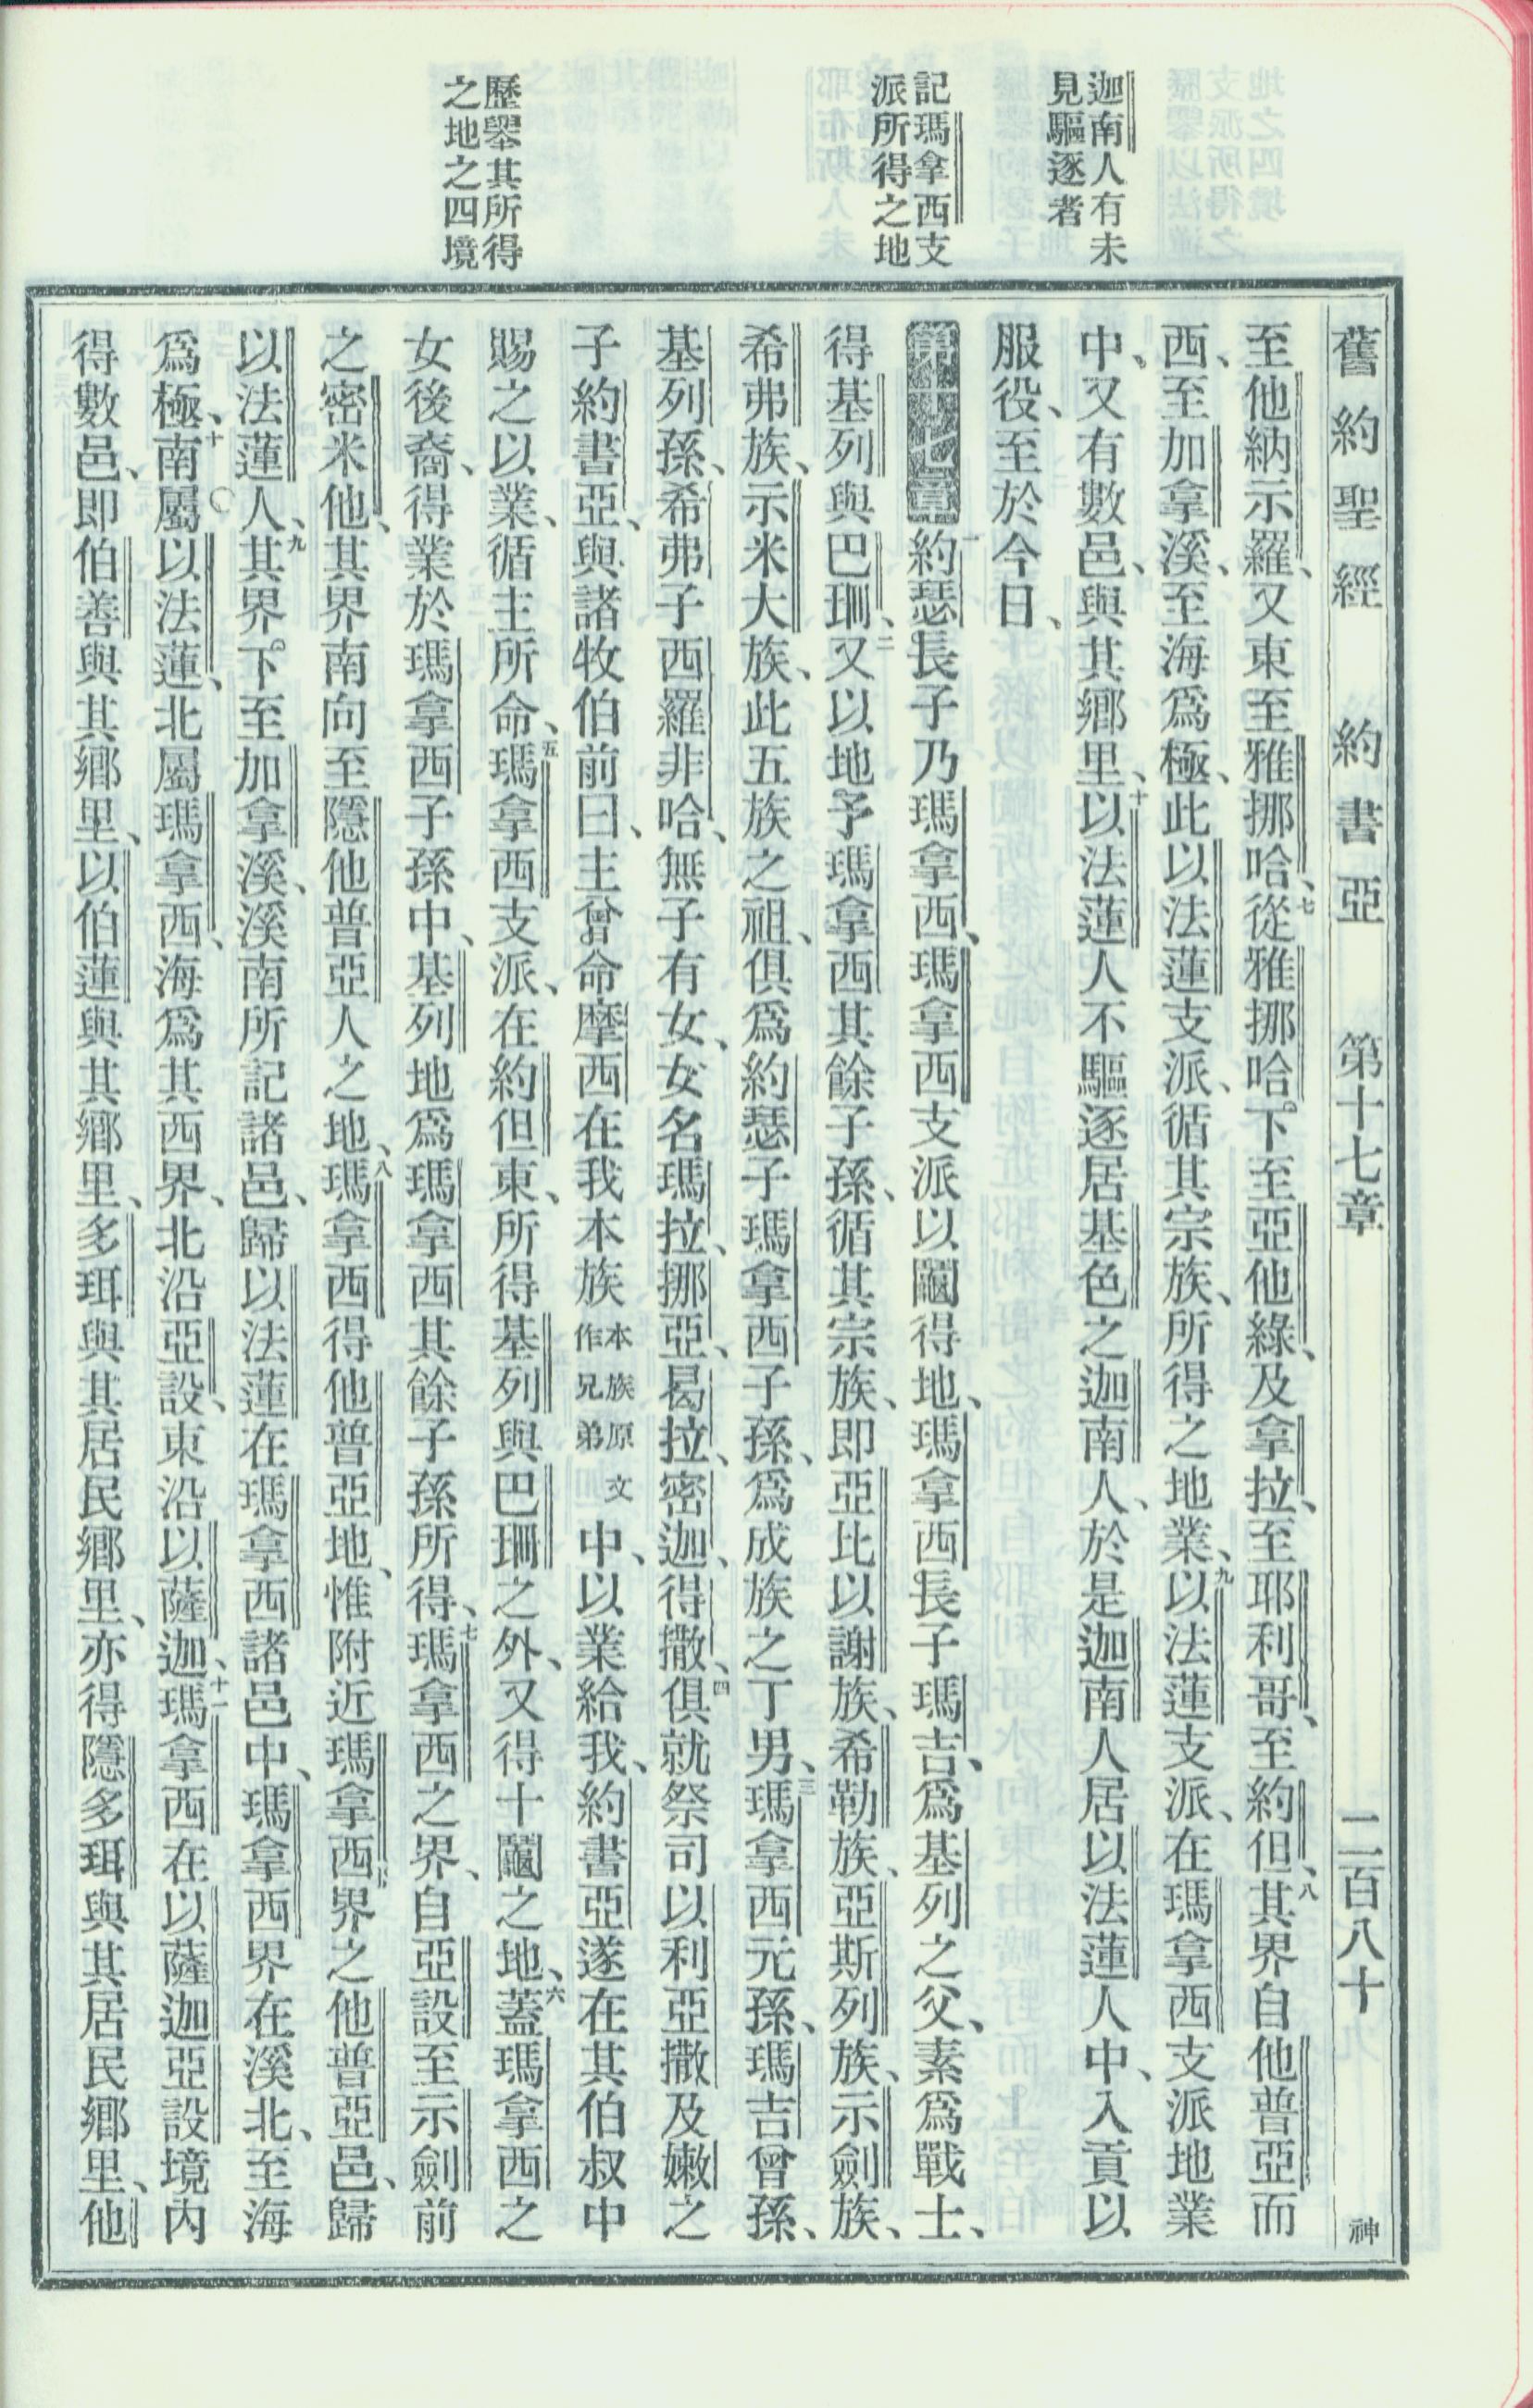 舊約聖經 約書亞 第十七章 二百八十 神
迦南人有未
見驅逐者
記瑪拿西支
派所得之地
歷舉其所得
之地之四境
至他納示羅、又東至雅挪哈、七從雅挪哈下至亞他綠、及拿拉、至耶利哥、至約但、八其界自他普亞而
西、至加拿溪、至海爲極、此以法蓮支派、循其宗族、所得之地業、九以法蓮支派、在瑪拿西支派地業
中、又有數邑、與其鄉里、十以法蓮人不驅逐居基色之迦南人、於是迦南人居以法蓮人中、入貢以
服役、至於今日、
第十七章 一約瑟長子乃瑪拿西、瑪拿西支派以鬮得地、瑪拿西長子瑪吉、爲基列之父、素爲戰士、
得基列與巴珊、二又以地予瑪拿西其餘子孫、循其宗族、即亞比以謝族、希勒族、亞斯列族、示劍族、
希弗族、示米大族、此五族之祖、俱爲約瑟子瑪拿西子孫、爲成族之丁男、三瑪拿西元孫、瑪吉曾孫、
基列孫、希弗子西羅非哈、無子有女、女名瑪拉、挪亞、曷拉、密迦、得撒、四俱就祭司以利亞撒及嫩之
子約書亞、與諸牧伯前曰、主曾命摩西在我本族本族原文作兄弟中、以業給我、約書亞遂在其伯叔中
賜之以業、循主所命、五瑪拿西支派、在約但東、所得基列與巴珊之外、又得十鬮之地、六蓋瑪拿西之
女後裔、得業於瑪拿西子孫中、基列地爲瑪拿西其餘子孫所得、七瑪拿西之界、自亞設至示劍前
之密米他、其界南向至隱他普亞人之地、八瑪拿西得他普亞地、惟附近瑪拿西界之他普亞邑、歸
以法蓮人、九其界下至加拿溪、溪南所記諸邑、歸以法蓮在瑪拿西諸邑中、瑪拿西界在溪北、至海
爲極、十南屬以法蓮、北屬瑪拿西、海爲其西界、北沿亞設、東沿以薩迦、十一瑪拿西在以薩迦亞設境內
得數邑、即伯善與其鄉里、以伯蓮與其鄉里、多珥與其居民鄉里、亦得隱多珥與其居民鄉里、他